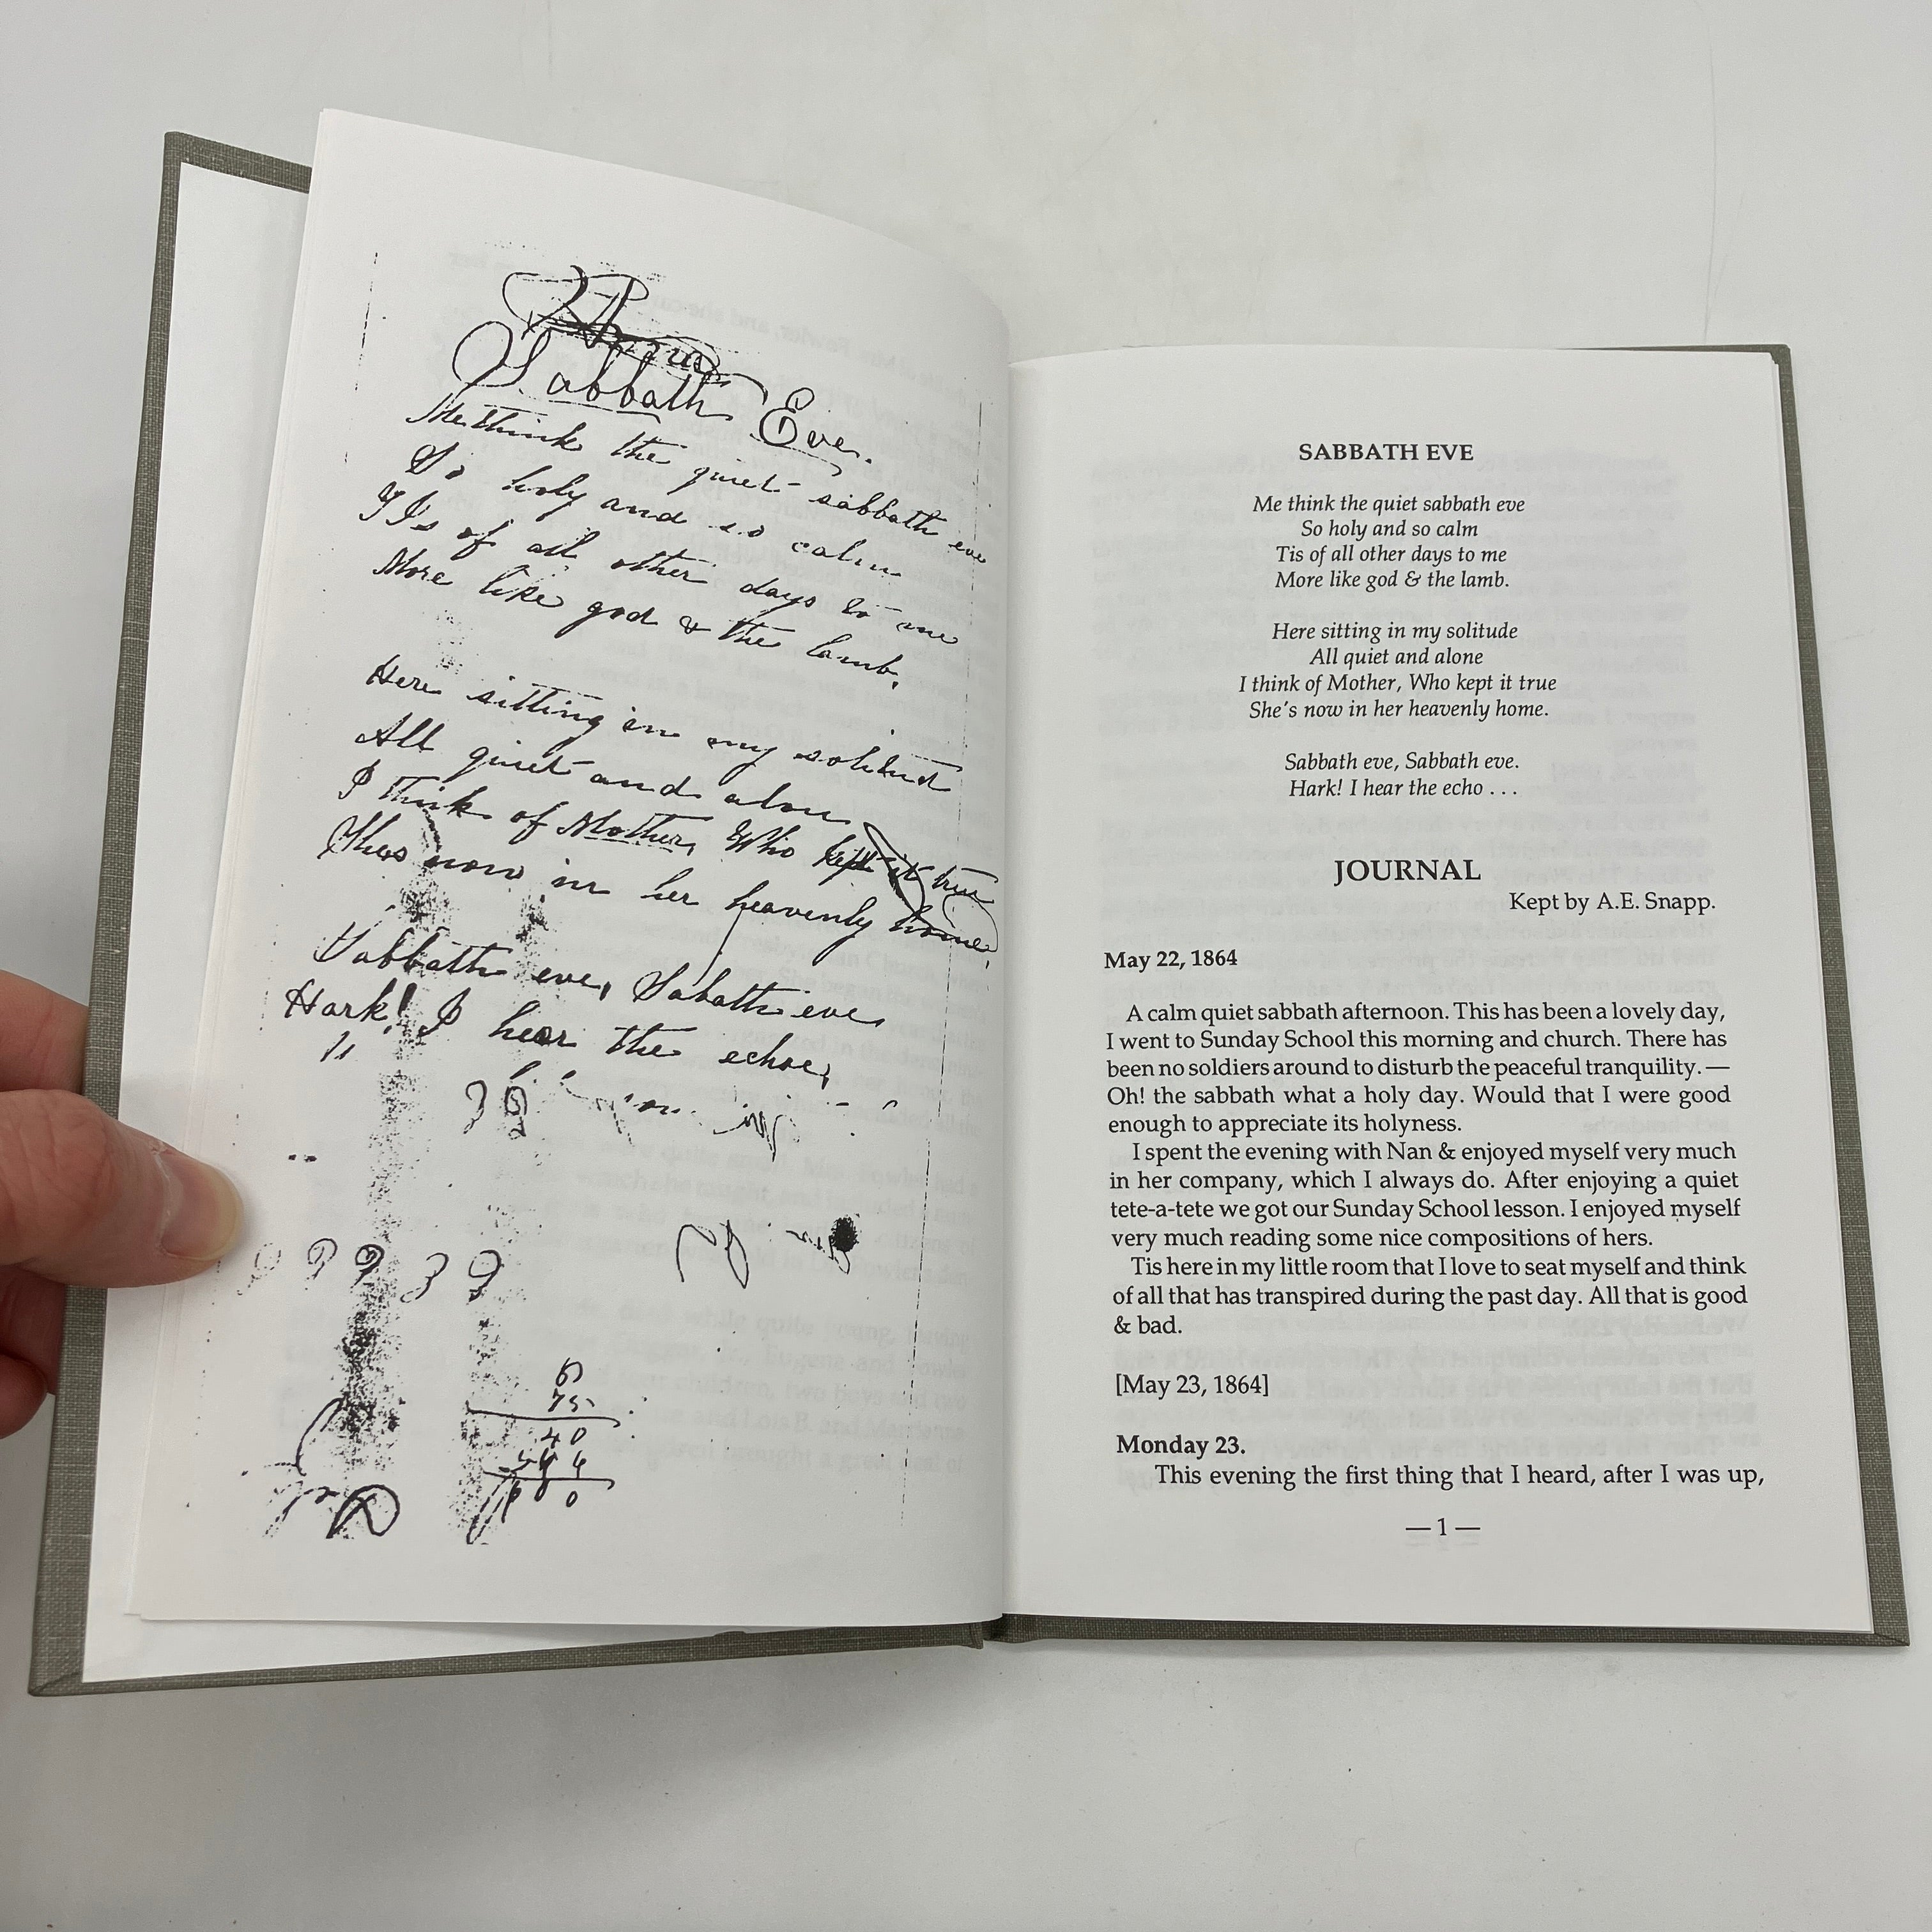 Sabbath Eve.
Me think the quiet sabbath eve
So holy and so calm
Tis of all other days to me
More like god & the lamb.
Here sitting in my solitud
All quiet and alon
I think of Mother, Who kept it true
Shes now in her heavenly home.
Sabbath eve, Sabath eve,
Hark! I hear the echoe,
"
9 9 9 3 9
6
75
40
0
SABBATH EVE
Me think the quiet sabbath eve
So holy and so calm
Tis of all other days to me
More like god & the lamb.
Here sitting in my solitude
All quiet and alone
I think of Mother, Who kept it true
She's now in her heavenly home.
Sabbath eve, Sabbath eve.
Hark! I hear the echo . . .
JOURNAL
Kept by A.E. Snapp.
May 22, 1864
A calm quiet sabbath afternoon. This has been a lovely day,
I went to Sunday School this morning and church. There has
been no soldiers around to disturb the peaceful tranquility. —
Oh! the sabbath what a holy day. Would that I were good
enough to appreciate its holyness.
I spent the evening with Nan & enjoyed myself very much
in her company, which I always do. After enjoying a quiet
tete-a-tete we got our Sunday School lesson. I enjoyed myself
very much reading some nice compositions of hers.
Tis here in my little room that I love to seat myself and think
of all that has transpired during the past day. All that is good
& bad.
[May 23, 1864]
Monday 23.
This evening the first thing that I heard, after I was up,
— 1 —